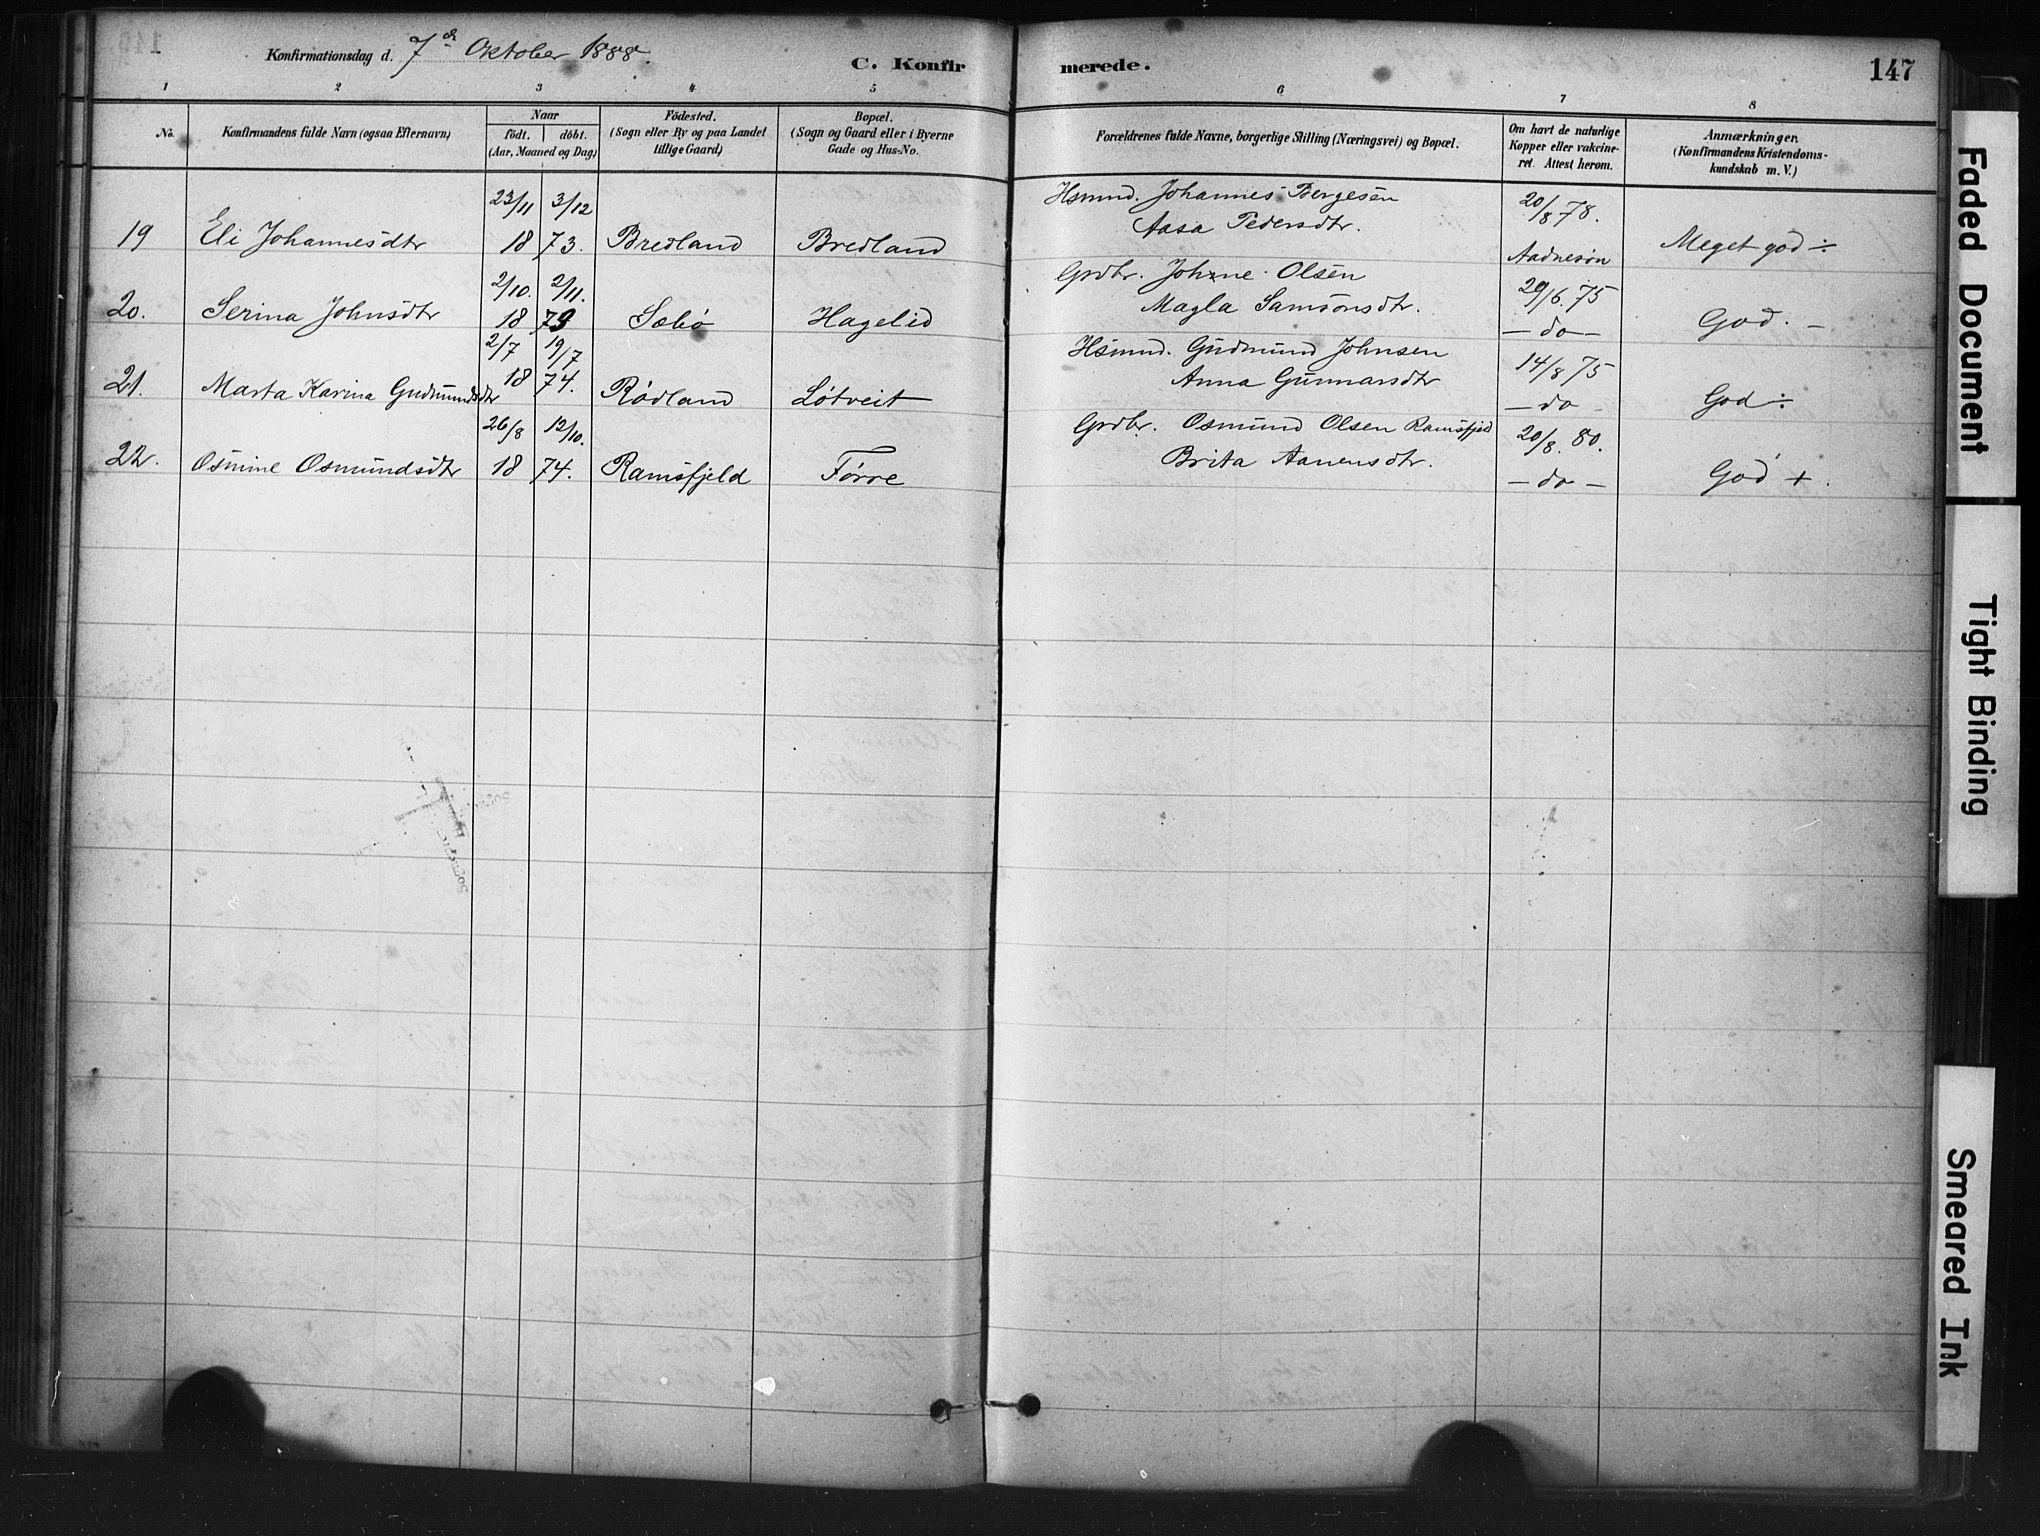 Konfirmationsdag d. 7de Oktober 1888.
C. Konfirmerede.
147
1 2 3 4 5 6 7 8
No.
Konfirmandens fulde Navn (ogsaa Efternavn)
Naar
födt. döbt.
(Aar, Maaned og Dag)
Födested.
(Sogn eller By og paa Landet
tillige Gaard)
Bopæl.
(Sogn og Gaard eller i Byerne
Gade og Hus-No.
Forældrenes fulde Navne, borgerlige Stilling (Næringsvei) og Bopæl.
Om havt de naturlige
Kopper eller vakcine-
ret. Attest herom.
Anmærkninger.
(Konfirmandens Kristendoms-
kundskab m. V.)
23/11 3/12 Hsmnd. Johannes Bergesen 20/8 78.
19 Eli Johannesdtr 18 73. Bredland Bredland Aasa Pedersdtr. Aadnesön Meget god ÷
2/10. 2/11. Grdbr. Johne Olsen 29/6. 75
20. Serina Johnsdtr 18 73 Sæbö Hagelid Magla Samsonsdtr. — do — God. —
2/7 19/7 Hsmnd. Gudmund Johnsen 14/8 75
21. Marta Karina Gudmundsdtr 18 74. Rødland Løtveit Anna Gunnarsdtr — do — God ÷
26/8 12/10. Grdbr. Osmund Olsen Ramsfjeld 20/8. 80.
22. Osmine Osmundsdtr 18 74. Ramsfjeld Førre Brita Aanensdtr. — do — God +.
Faded Document
Tight Binding
Smeared Ink